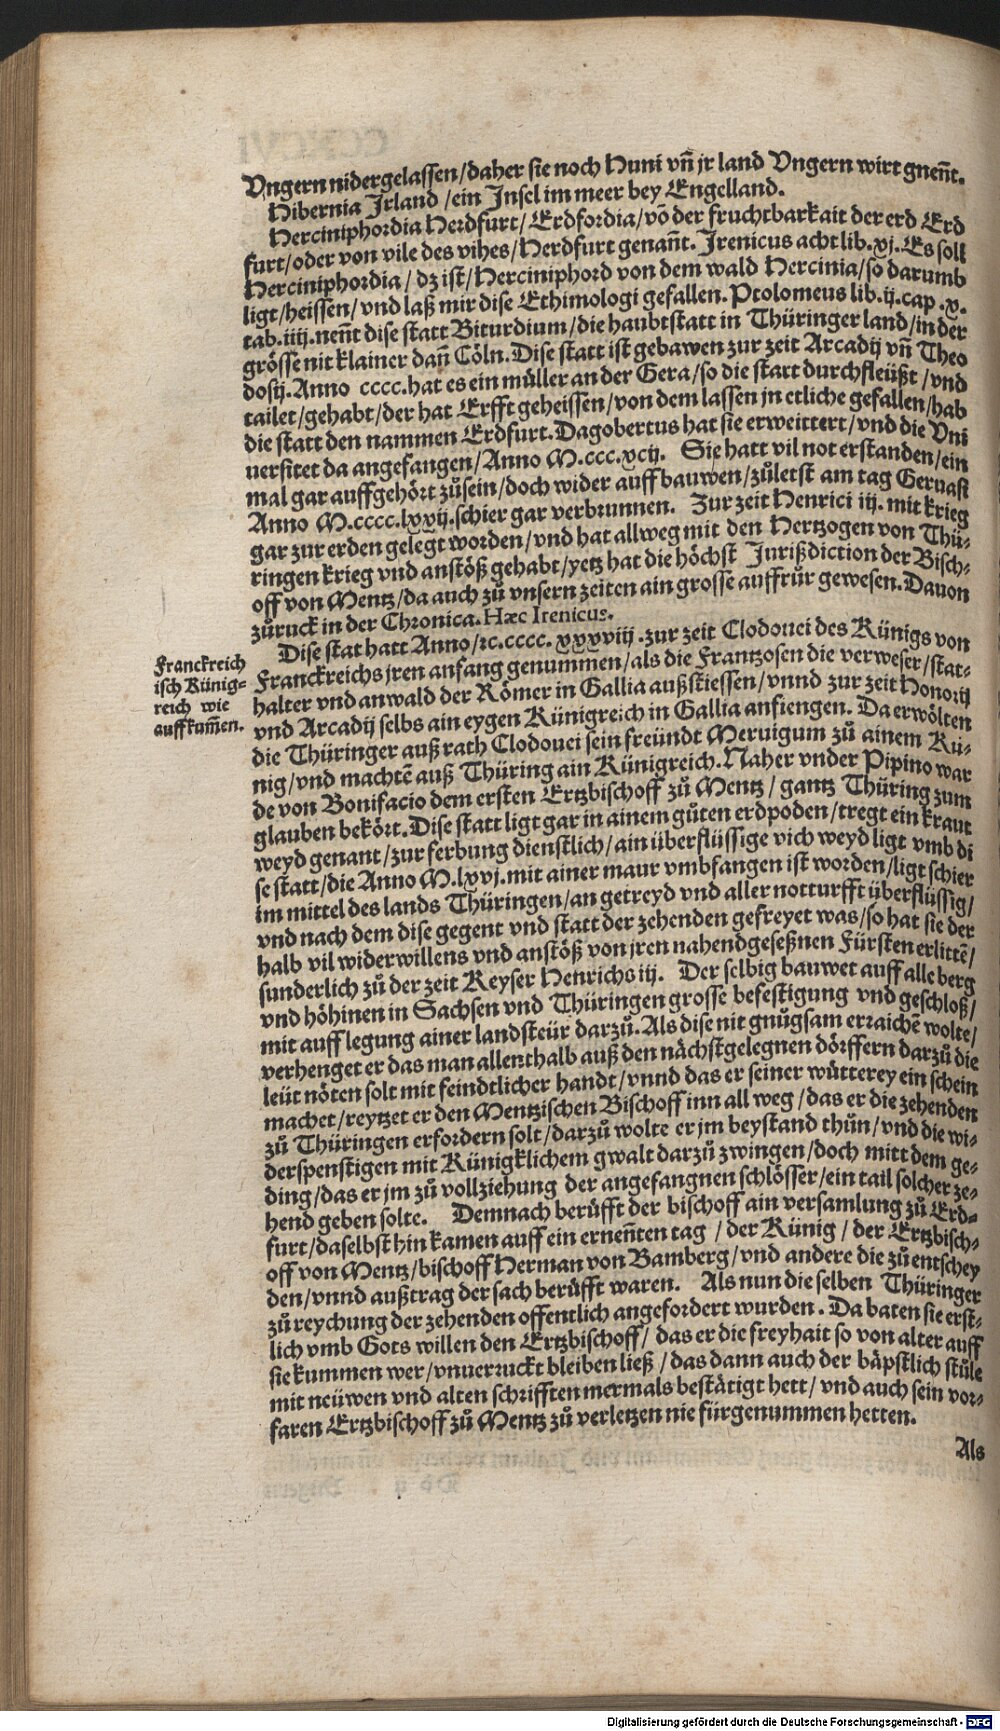 Vngern nidergelassen/daher sie noch Huni vñ jr land Vngern wirt gneñt.
Hibernia Jrland/ein Jnsel im meer bey Engelland.
Herciniphordia Herdfurt/Erdfordia/võ der fruchtbarkait der erd Erd
furt/oder von vile des vihes/Herdfurt genañt. Jrenicus acht lib.xj.Es soll
Herciniphordia/dz ist/Herciniphord von dem wald Hercinia/so darumb
ligt/heissen/vnd laß mir dise Ethimologi gefallen.Ptolomeus lib.ij.cap.x.
tab.iiij.neñt dise statt Biturdium/die haubtstatt in Thüringer land/in der
grösse nit klainer dañ Cöln.Dise statt ist gebawen zur zeit Arcadij vñ Theo
dosij.Anno cccc.hat es ein müller an der Gera/so die statt durchfleüßt/vnd
tailet/gehabt/der hat Erfft geheissen/von dem lassen jn etliche gefallen/hab
die statt den nammen Erdfurt.Dagobertus hat sie erweittert/vnd die Vni
uersitet da angefangen/Anno M.ccc.xcij. Sie hatt vil not erstanden/ein
mal gar auffgehört zůsein/doch wider auff bauwen/zůletst am tag Geruasi
Anno M.cccc.lxxij.schier gar verbrunnen. Zur zeit Henrici iij.mit krieg
gar zur erden gelegt worden/vnd hat allweg mit den Hertzogen von Thü-
ringen krieg vnd anstöß gehabt/yetz hat die höchst Jurißdiction der Bisch-
off von Mentz/da auch zů vnsern zeiten ain grosse auffrůr gewesen.Dauon
zůruck in der Chronica.Hæc Irenicus.
Dise stat hatt Anno/ꝛc.cccc.xxxviij.zur zeit Clodouei des Künigs von
Franckreichs jren anfang genummen/als die Frantzosen die verweser/stat-
halter vnd anwald der Römer in Gallia außstiessen/vnnd zur zeit Honorij
vnd Arcadij selbs ain eygen Künigreich in Gallia anfiengen.Da erwölten
die Thüringer auß rath Clodouei sein freündt Meruigum zů ainem Kü-
nig/vnd machtẽ auß Thüring ain Künigreich.Naher vnder Pipino war
de von Bonifacio dem ersten Ertzbischoff zů Mentz/gantz Thüring zum
glauben bekört.Dise statt ligt gar in ainem gůten erdpoden/tregt ein kraut
weyd genant/zur ferbung dienstlich/ain überflüssige vich weyd ligt vmb di
se statt/die Anno M.lxvj.mit ainer maur vmbfangen ist worden/ligt schier
im mittel des lands Thüringen/an getreyd vnd aller notturfft überflüssig/
vnd nach dem dise gegent vnd statt der zehenden gefreyet was/so hat sie der
halb vil widerwillens vnd anstöß von jren nahendgeseßnen Fürsten erlittẽ/
sunderlich zů der zeit Keyser Henrichs iij. Der selbig bauwet auff alle berg
vnd höhinen in Sachsen vnd Thüringen grosse befestigung vnd geschloß/
mit aufflegung ainer landsteür darzů.Als dise nit gnůgsam erraichẽ wolte/
verhenget er das man allenthalb auß den nächstgelegnen dörffern darzů die
leüt nöten solt mit feindtlicher handt/vnnd das er seiner wütterey ein schein
machet/reytzet er den Mentzischen Bischoff inn all weg/das er die zehenden
zů Thüringen erfordern solt/darzů wolte er jm beystand thůn/vnd die wi-
derspenstigen mit Künigklichem gwalt darzů zwingen/doch mitt dem ge-
ding/das er jm zů vollziehung der angefangnen schlösser/ein tail solcher ze-
hend geben solte. Demnach berůfft der bischoff ain versamlung zů Erd-
furt/daselbst hin kamen auff ein ernenten tag/der Künig/der Ertzbisch-
off von Mentz/bischoff Herman von Bamberg/vnd andere die zů entschey
den/vnnd außtrag der sach berůfft waren. Als nun die selben Thüringer
zů reychung der zehenden offentlich angefordert wurden.Da baten sie erst-
lich vmb Gots willen den Ertzbischoff/das er die freyhait so von alter auff
sie kummen wer/vnuerruckt bleiben ließ/das dann auch der bäpstlich stůle
mit neüwen vnd alten schrifften mermals bestätigt hett/vnd auch sein vor-
faren Ertzbischoff zů Mentz zů verletzen nie fürgenummen hetten.
Als
Franckreich
isch Künig-
reich wie
auffkum̃en.
Digitalisierung gefördert durch die Deutsche Forschungsgemeinschaft - DFG